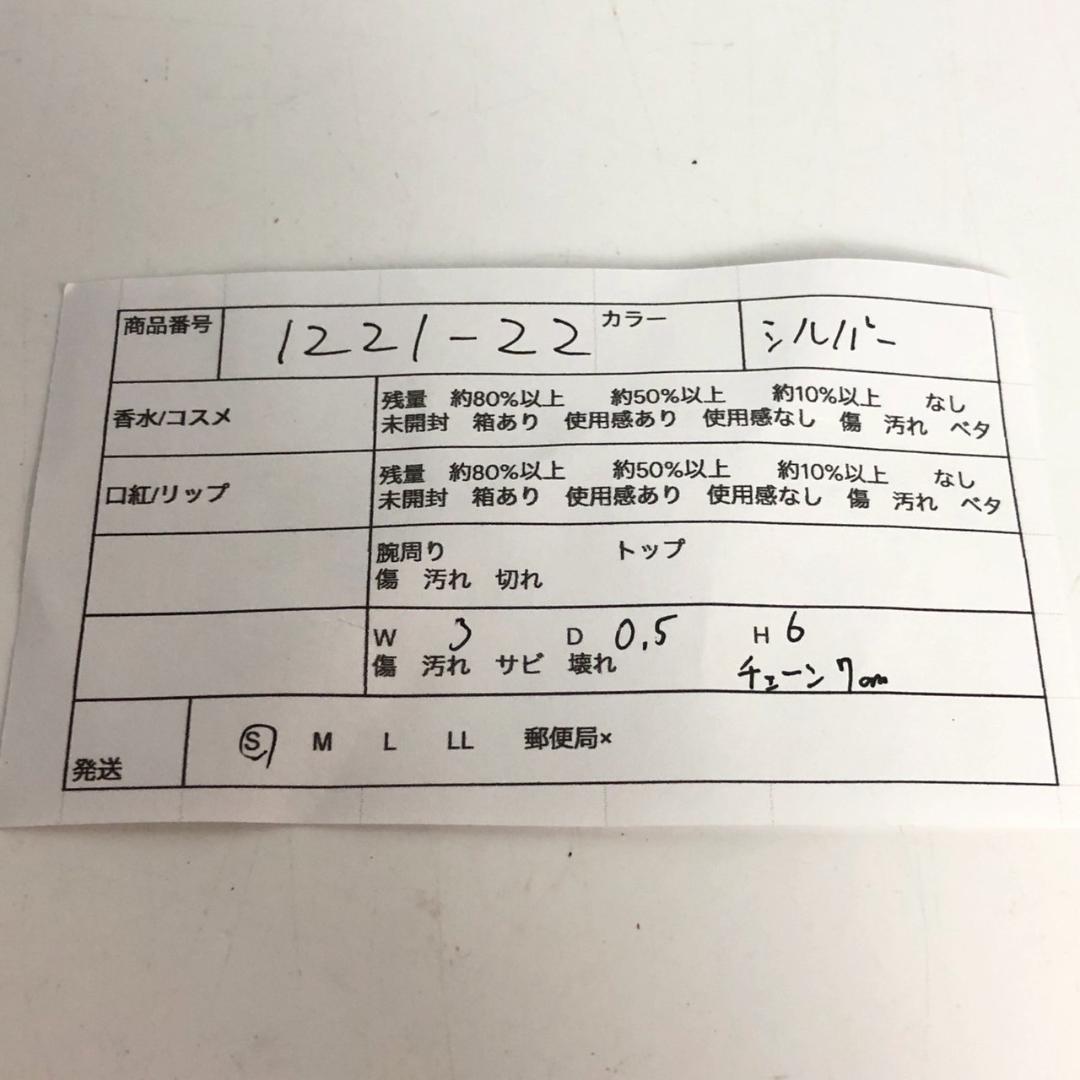 商品番号 1221-22 カラー シルバー
香水/コスメ
残量 約80%以上 約50%以上 約10%以上 なし
未開封 箱あり 使用感あり 使用感なし 傷 汚れ ベタ
口紅/リップ
残量 約80%以上 約50%以上 約10%以上 なし
未開封 箱あり 使用感あり 使用感なし 傷 汚れ ベタ
腕周り トップ
傷 汚れ 切れ
W 3 D 0.5 H 6
傷 汚れ サビ 壊れ チェーン7cm
発送 S M L LL 郵便局×